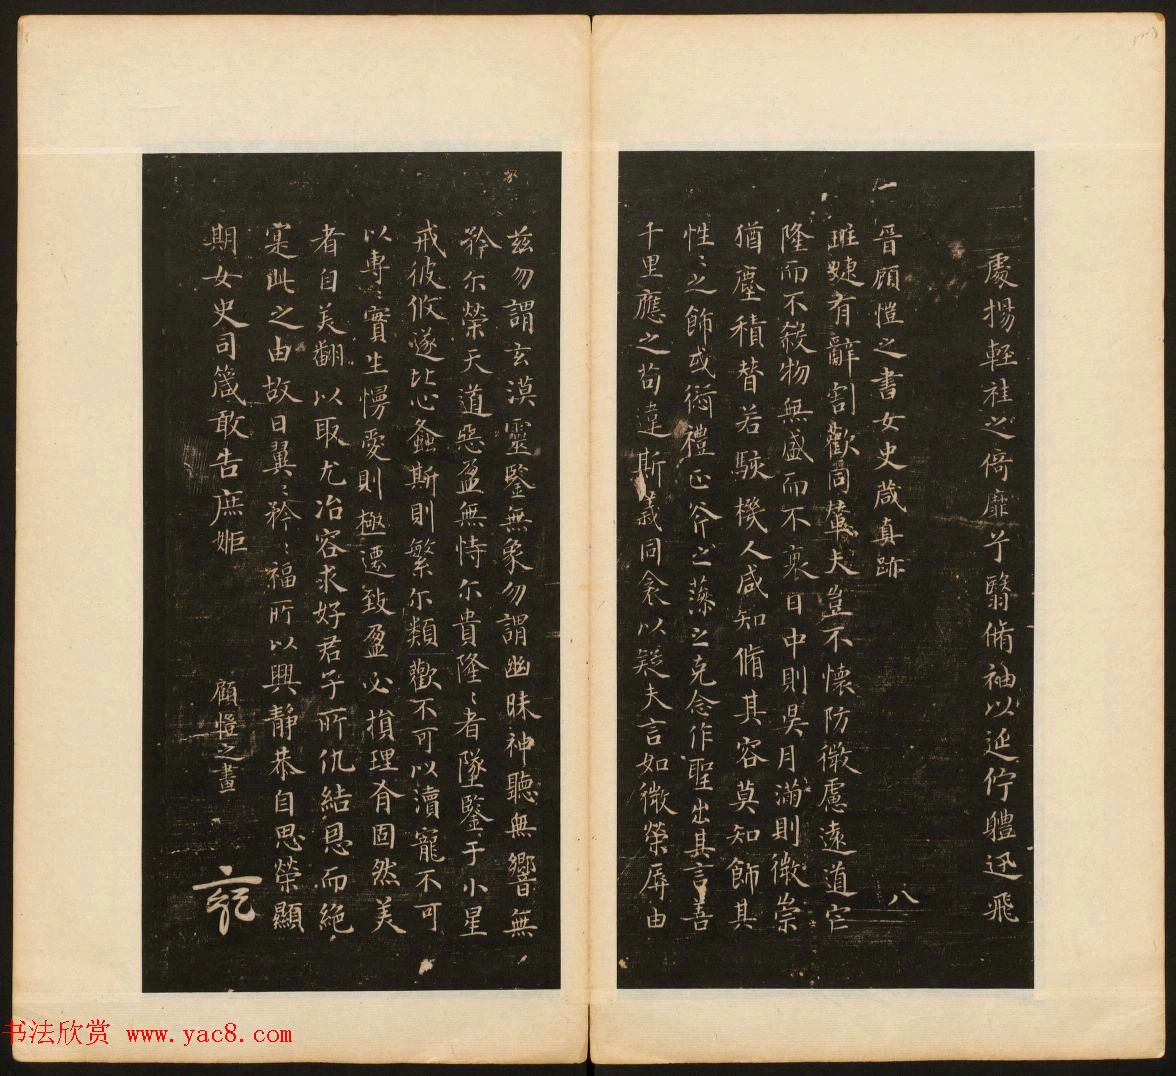 處揚輕袿之倚靡兮翳脩袖以延佇軆迅飛
晉顧愷之書女史箴真跡
八
班婕有辭割歡同輦夫豈不懷防微慮遠道它
隆而不殺物無盛而不衰日中則昃月滿則微崇
猶塵積替若駭機人咸知脩其容莫知飾其
性〻之飾或愆禮正斧之藻之克念作聖出其言善
千里應之苟違斯義同衾以疑夫言如微榮辱由
茲勿謂玄漠靈鑒無象勿謂幽昧神聽無響無
矜尔榮天道惡盈無恃尔貴隆〻者墜鑒于小星
戒彼攸遂比心螽斯則繁尔類歡不可以瀆寵不可
以專〻實生慢愛則極遷致盈必損理有固然美
者自美翻以取尤冶容求好君子所仇結恩而絕
寔此之由故曰翼〻矜〻福所以興靜恭自思榮顯
期女史司箴敢告庶姬
顧愷之畫
书法欣赏 www.yac8.com